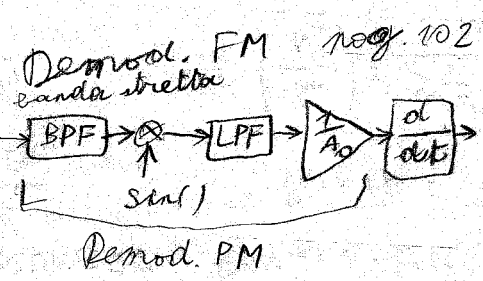 Demod. FM pag. 102
banda stretta
BPF LPF 1/A₀ d/dt
sin()
Demod. PM